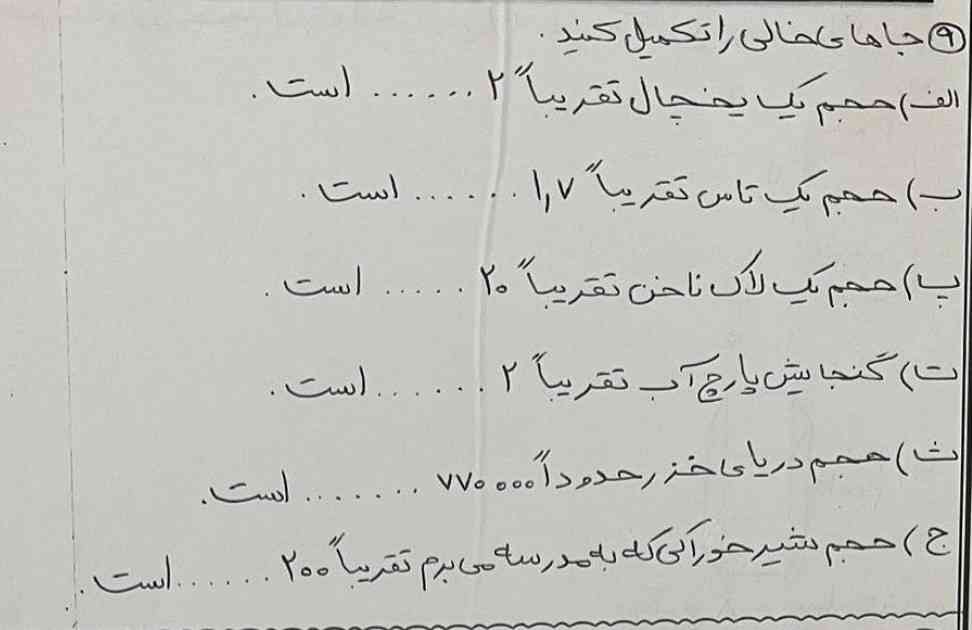 ۹) جاهای خالی را تکمیل کنید.
الف) حجم یک یخچال تقریباً ۲ ...... است.
ب) حجم یک تاس تقریباً ۱٫۷ ...... است.
پ) حجم یک لاک ناخن تقریباً ۲۰ ...... است.
ت) گنجایش پارچ آب تقریباً ۲ ...... است.
ث) حجم دریای خزر حدوداً ۷۷۰۰۰۰ ....... است.
ج) حجم شیر خوراکی که به مدرسه می برم تقریباً ۲۰۰ ...... است.